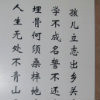 孩儿立志出乡关
学不成名誓不还
埋骨何须桑梓地
人生无处不青山